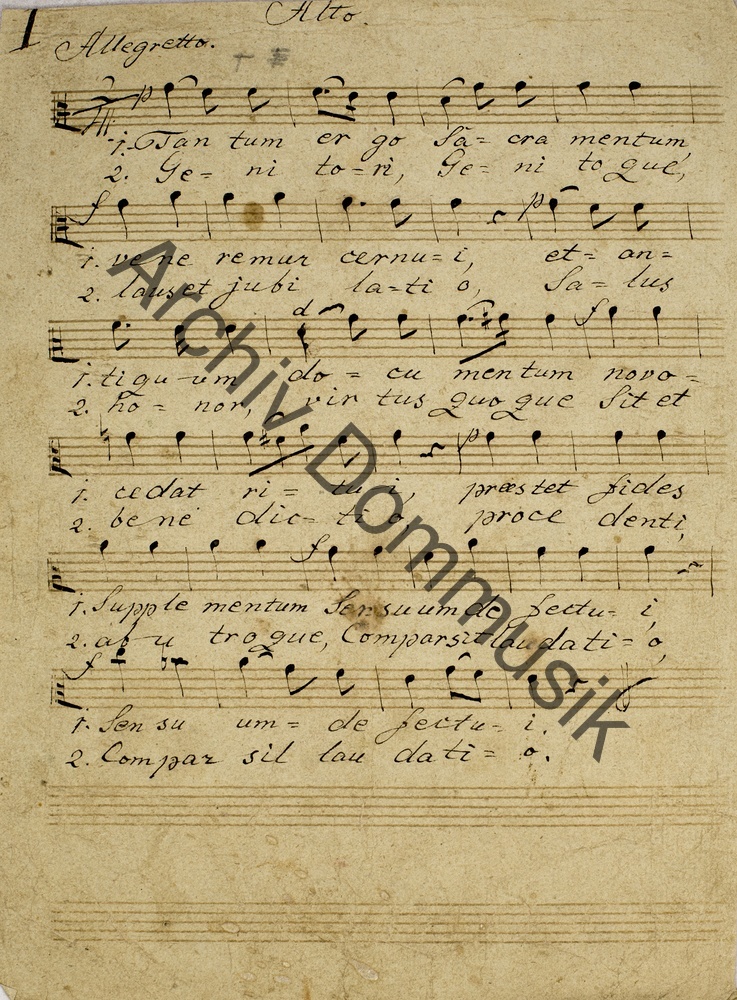 1
Alto.
Allegretto.
p
1. Tan tum er go Sa= cra mentum,
2. Ge= ni to=ri, Ge= ni to que,
f p
1. ve ne remur cernu=i, et= an=
2. laus et jubi la=ti o, Sa= lus
d f
1. tiqu-um do= cu mentum novo=
2. ho= nor, vir tus quo que Sit et
p
1. cedat ri= tu i, præstet fides
2. bene dic= ti o proce denti,
f
1. Supple mentum Sensuum de fectu= i,
2. ab u tro que, Comparsit laudati= o,
f
1. Sen su um= de fectu= i.
2. Compar sit lau dati= o.
Archiv Dommusik